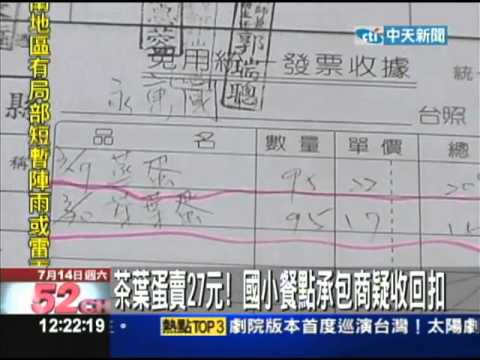 cti 中天新聞
蘭地區有局部短暫陣雨或雷
郭瑞聰
免用統一發票收據
統一
縣
台照
品 名 數量 單價 總
稱
蒸蛋 95
茶葉蛋 95 17
7月14日週六
茶葉蛋賣27元! 國小餐點承包商疑收回扣
52CH
12:22:19
熱點TOP3 劇院版本首度巡演台灣! 太陽劇